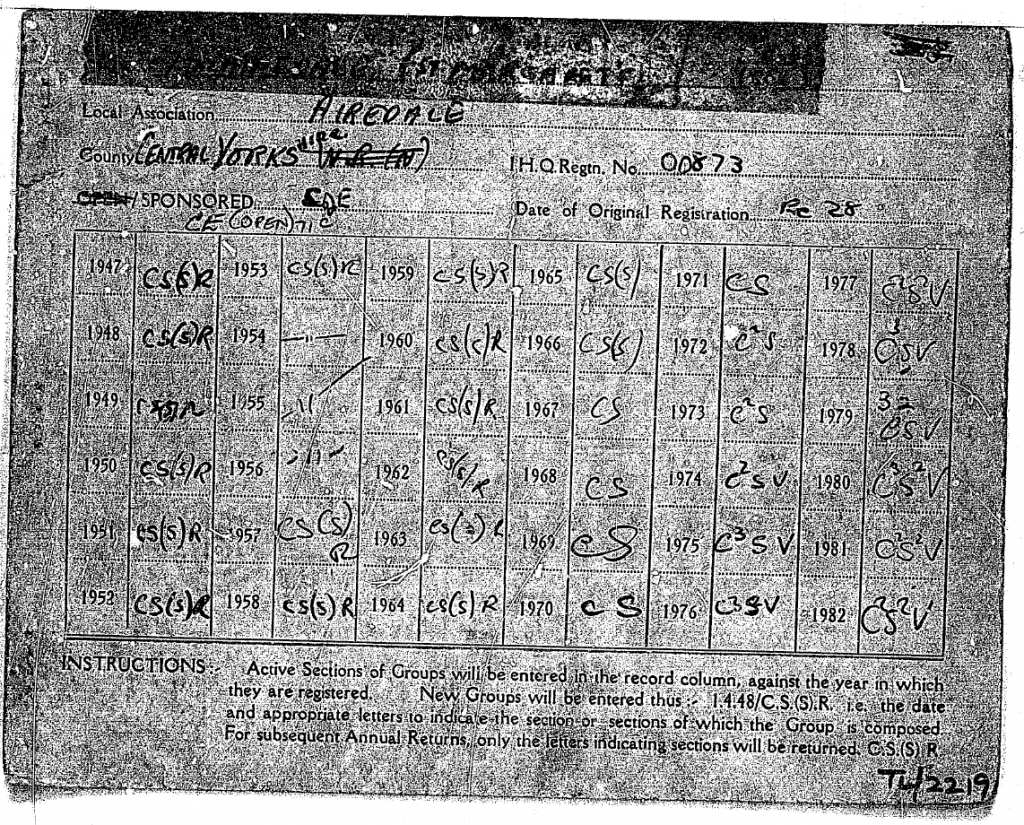 Local Association AIREDALE
County CENTRAL YORKSHIRE
I.H.Q. Regtn. No. 00873
OPEN/SPONSORED
Date of Original Registration 28
CE (OPEN)
1947 CS(S)R 1953 CS(S)R 1959 CS(S)R 1965 CS(S) 1971 CS 1977 C²SV
1948 CS(S)R 1954 —"— 1960 CS(S)R 1966 CS(S) 1972 C²S 1978 C³SV
1949 1955 —"— 1961 CS(S)R 1967 CS 1973 C²S 1979
1950 CS(S)R 1956 —"— 1962 CS(S)R 1968 CS 1974 C²SV 1980 C³S²V
1951 CS(S)R 1957 CS(S)R 1963 CS(S)R 1969 CS 1975 C³SV 1981 C²S²V
1952 CS(S)R 1958 CS(S)R 1964 CS(S)R 1970 CS 1976 C3SV 1982 C²S²V
INSTRUCTIONS :- Active Sections of Groups will be entered in the record column, against the year in which
they are registered. New Groups will be entered thus :- 1.4.48/C.S.(S).R. i.e. the date
and appropriate letters to indicate the section or sections of which the Group is composed.
For subsequent Annual Returns, only the letters indicating sections will be returned. C.S.(S) R.
TL/2219